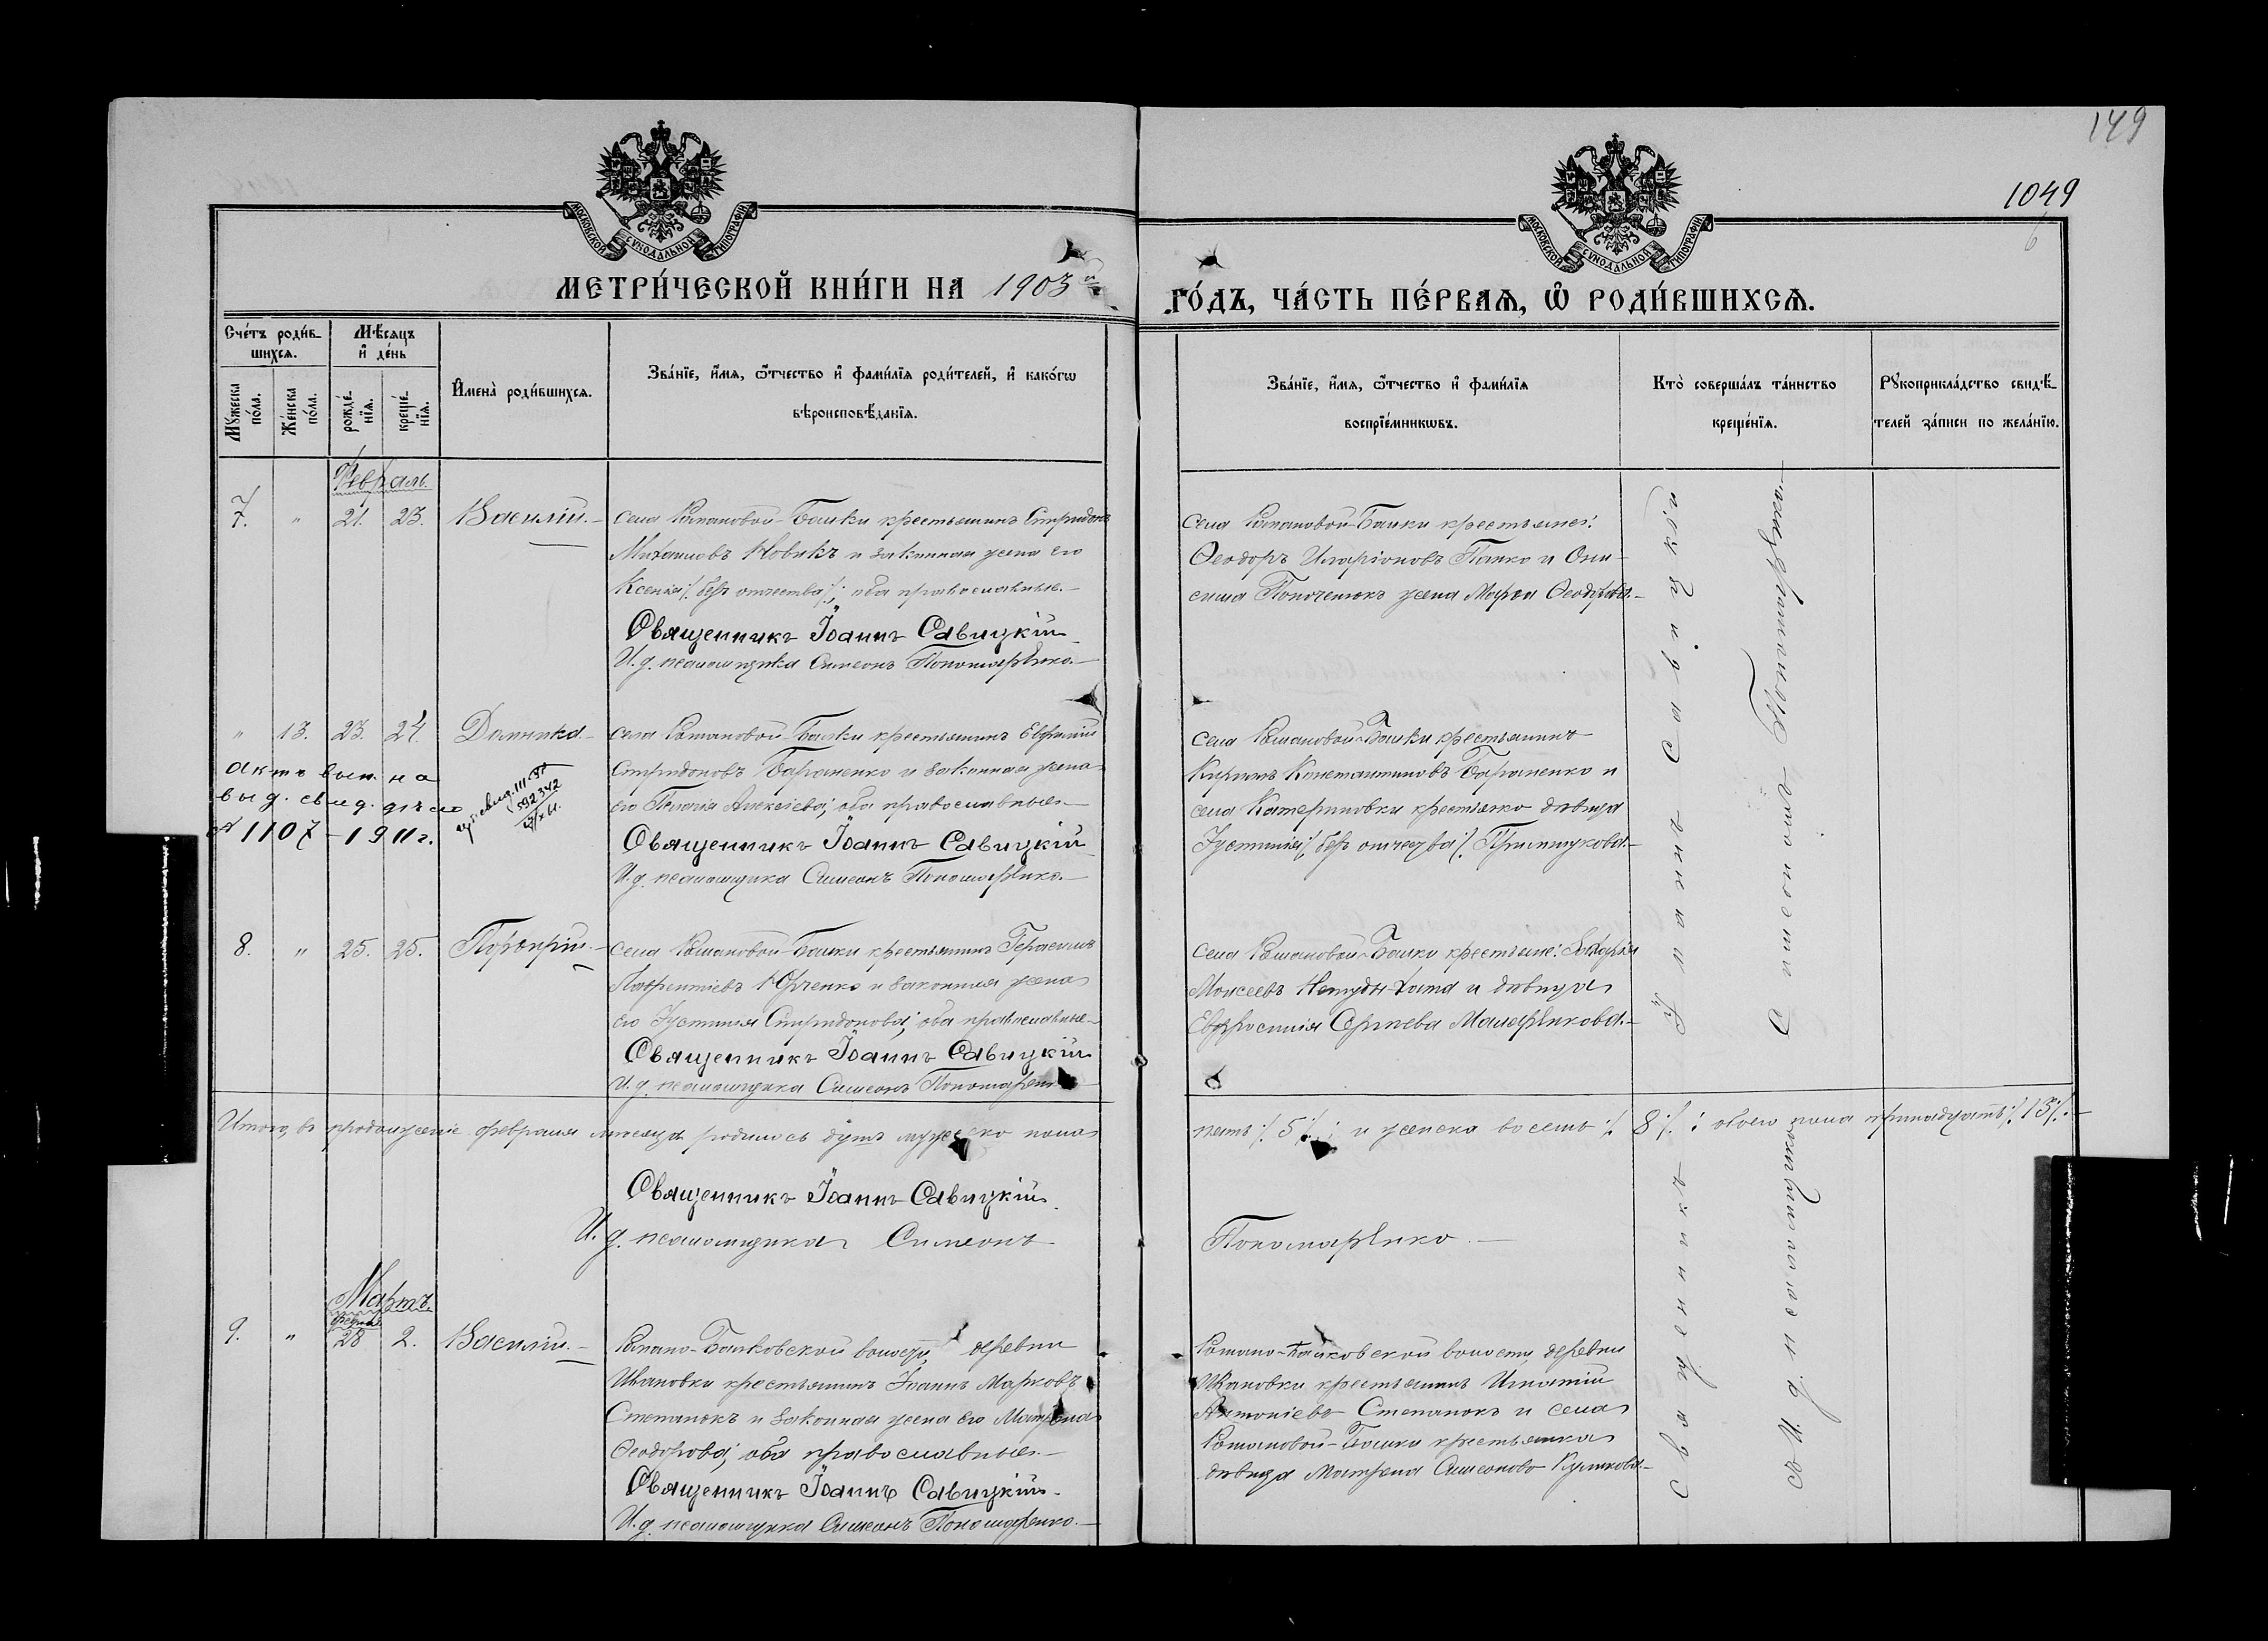 149
1049
6
МОСКОВСКОЙ СѴНОДАЛЬНОЙ ТИПОГРАФІИ
МОСКОВСКОЙ СѴНОДАЛЬНОЙ ТИПОГРАФІИ
МЕТРИ́ЧЕСКОЙ КНИ́ГИ НА 1903й ГО́ДЪ, ЧА́СТЬ ПЕ́РВАЯ, Ѡ РОДИ́ВШИХСЯ.
Сче́тъ роди́в-
шихся.
Мѣ́сяцъ
и де́нь
Мꙋ́жеска по́ла.
Же́нска по́ла.
рожде́-
нїя.
креще́-
нїя.
Имена̀ роди́вшихся.
Зва́нїе, и́мя, ѻ́тчество и фами́лїя роди́телей, и како́гѡ
вѣроисповѣ́данїя.
Зва́нїе, и́мя, ѻ́тчество и фами́лїя
воспрїе́мникѡвъ.
Кто̀ соверша́лъ та́инство
креще́нїя.
Рꙋкоприкла́дство свидѣ́-
телей за́писи по жела́нїю.
Февраль.
7. " 21. 23. Василій.-
села Романовой-Балки крестьянинъ Спиридонъ
Михаиловъ Новикъ и законная жена его
Ксенія /. безъ отчества /.; оба православные.-
Священникъ Іоаннъ Савицкій
И. д. псаломщика Симеонъ Пономаренко.-
Села Романовой-Балки крестьяне:
Ѳеодоръ Иларіоновъ Папко и Они-
сима жена Марѳа Ѳеодорова.-
" 13. 23. 24. Домника.-
Актъ вып. на
выд. свид. дѣло
№ 1107 - 1911 г.
592342
села Романовой-Балки крестьянинъ Евфимій
Спиридоновъ Бараненко и законная жена
его Пелагія Алексіева; оба православные.-
Священникъ Іоаннъ Савицкій
И. д. псаломщика Симеонъ Пономаренко.-
Села Романовой-Балки крестьянинъ
Кириллъ Константиновъ Бараненко и
села Катериновки крестьянка дѣвица
Іустинія /. безъ отчества /.
8. " 25. 25. Порфирій.-
села Романовой-Балки крестьянинъ Герасимъ
Лаврентіевъ Юрченко и законная жена
его Іустинія Спиридонова; оба православные.-
Священникъ Іоаннъ Савицкій
И. д. псаломщика Симеонъ Пономаренко
Села Романовой-Балки крестьяне: Захарія
Моисеевъ Непуды-хата и дѣвица
Евфросинія Сергіева Малярикова.-
Итого, въ продолженіе февраля мѣсяца родилось дѣтей мужеско пола
пять /. 5 /.; и женска восемь /. 8 /.: обоего пола тринадцать /. 13 /.-
Священникъ Іоаннъ Савицкій.
И. д. псаломщика Симеонъ Пономаренко.-
Мартъ.
феврал.
9. " 28 2. Василій.-
Романо-Балковской волости, деревни
Ивановки крестьянинъ Іоаннъ Марковъ
Степанюкъ и законная жена его Матрона
Ѳеодорова; оба православные.-
Священникъ Іоаннъ Савицкій.
И. д. псаломщика Симеонъ Пономаренко.-
Романо-Балковской волости, деревни
Ивановки крестьянинъ Игнатій
Антоніевъ Степанюкъ и села
Романовой-Балки крестьянка
дѣвица Матрона Симеонова Куликова.-
Священникъ Іоаннъ Савицкій
съ И. д. псаломщика Симеономъ Пономаренкомъ.